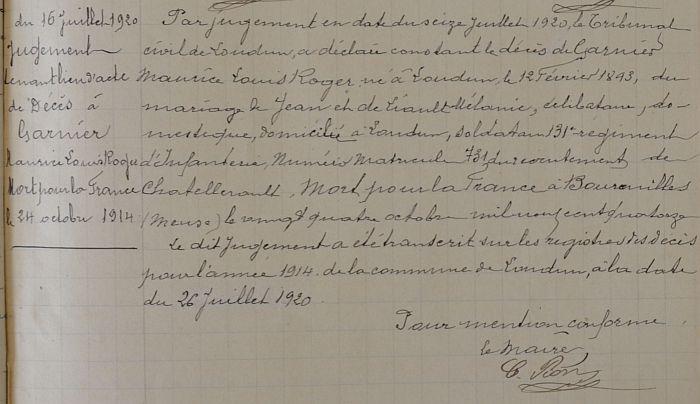 du 16 Juillet 1920
Jugement
tenant lieu d'acte
de Décès à
Garnier
Maurice Louis Roger
Mort pour la France
le 24 octobre 1914
Par jugement en date du seize Juillet 1920, le Tribunal
civil de Loudun, a déclaré constant le décès de Garnier
Maurice Louis Roger, né à Loudun, le 12 Février 1893, du
mariage de Jean et de Liault Mélanie, célibataire, do-
mestique, domicilié à Loudun, soldat au 131e regiment
d'Infanterie, Numéro Matricule 731 du recrutement de
Chatellerault, Mort pour la France à Boureuilles
(Meuse) le vingt quatre octobre mil neuf cent quatorze
Le dit Jugement a été transcrit sur les registres des décès
pour l'année 1914. de la commune de Loudun, à la date
du 26 Juillet 1920.
Pour mention conforme
le Maire